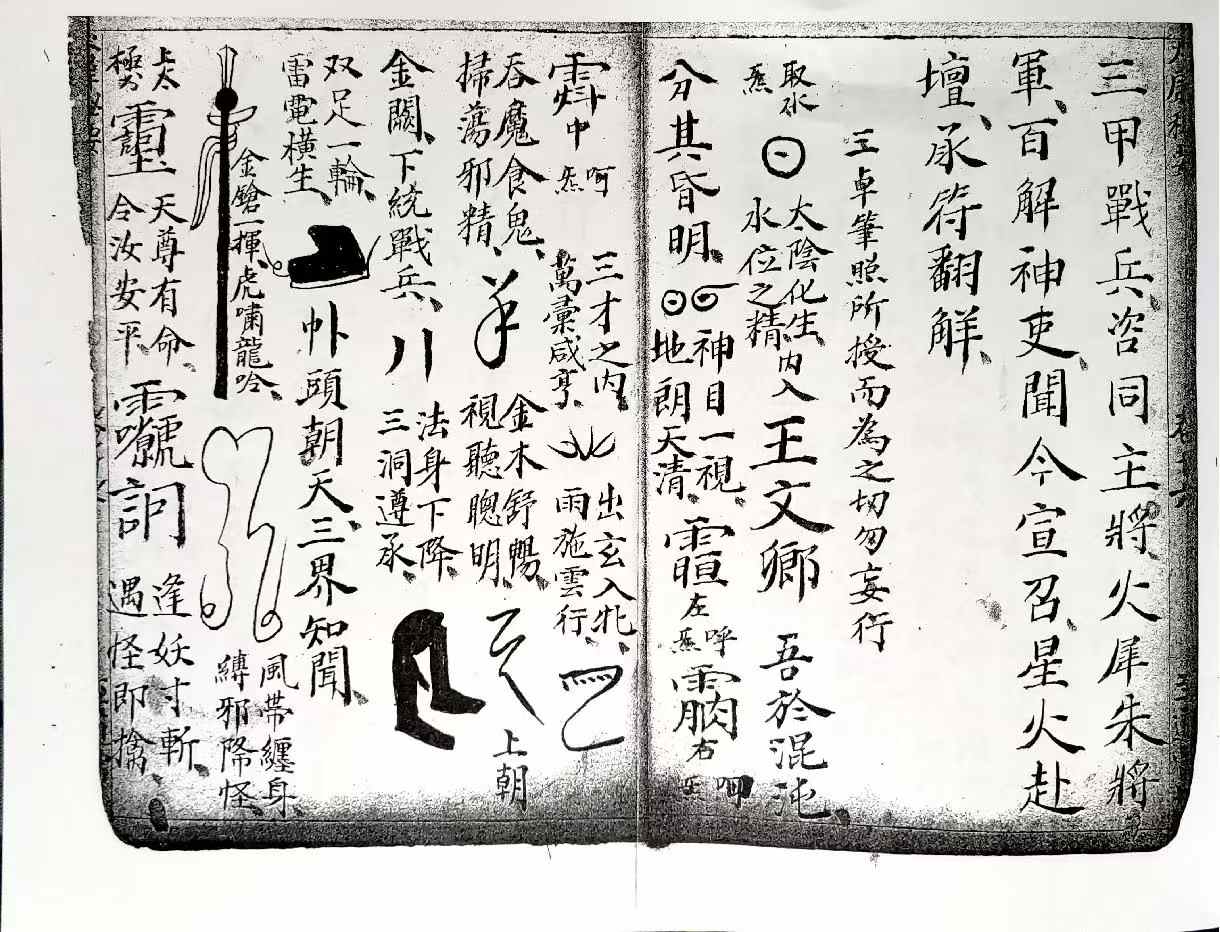 三甲戰兵、咨同主將火犀朱將
軍、百解神吏、聞今宣召、星火赴
壇、承符翻解、
三卓筆照所授而為之切勿妄行
取水
太陰化生
水位之精
內入
王文卿
吾於混沌、
分其昏明、
神目一視、
地朗天清、
左
呼
右
呵
中
呵
三才之內、
萬彙咸亨、
出玄入牝、
雨施雲行、
吞魔食鬼、
掃蕩邪精、
金木舒暢、
視聽聰明、
上朝
金闕、下統戰兵、
法身下降、
三洞遵承、
双足一輪、
雷電橫生、
頭朝天、三界知聞、
金鎗一揮、虎嘯龍吟、
風帶纏身、
縛邪降怪、
天尊有命、
令汝安平、
逢妖寸斬、
遇怪即擒、